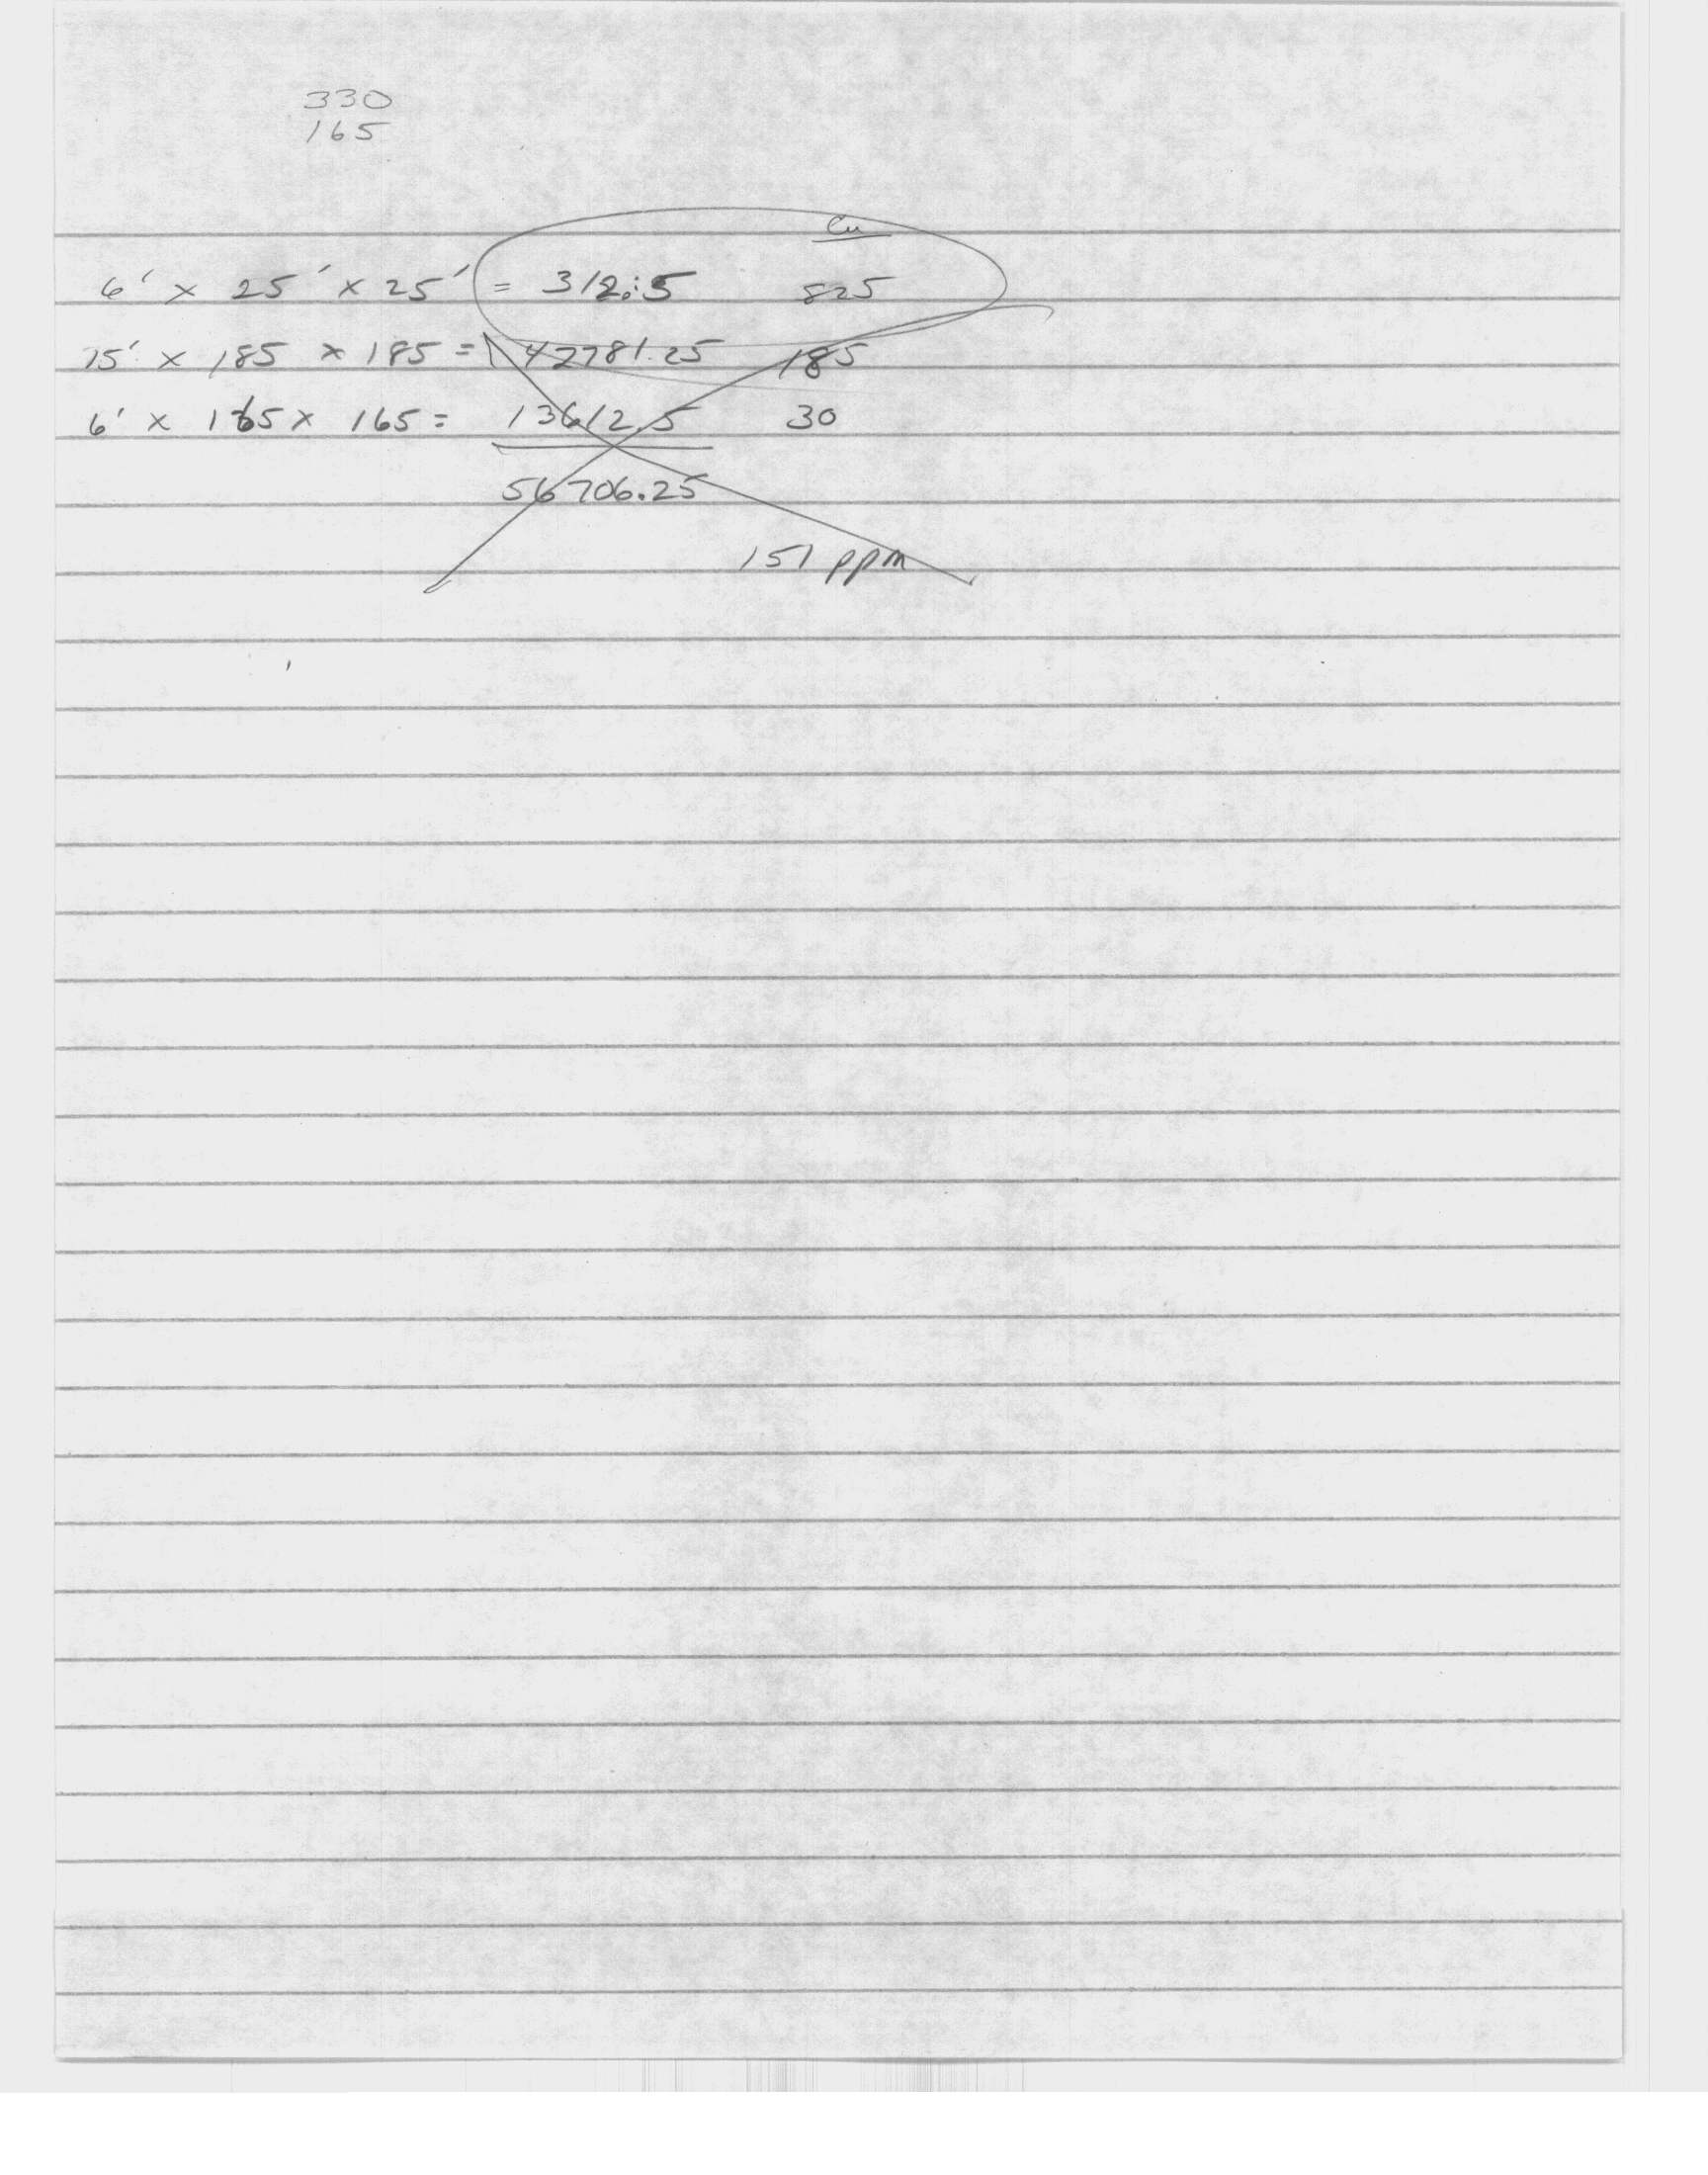 330
165
Cu
6' x 25' x 25' = 312.5 825
15' x 185 x 185 = 42781.25 185
6' x 165 x 165 = 13612.5 30
56706.25
151 ppm